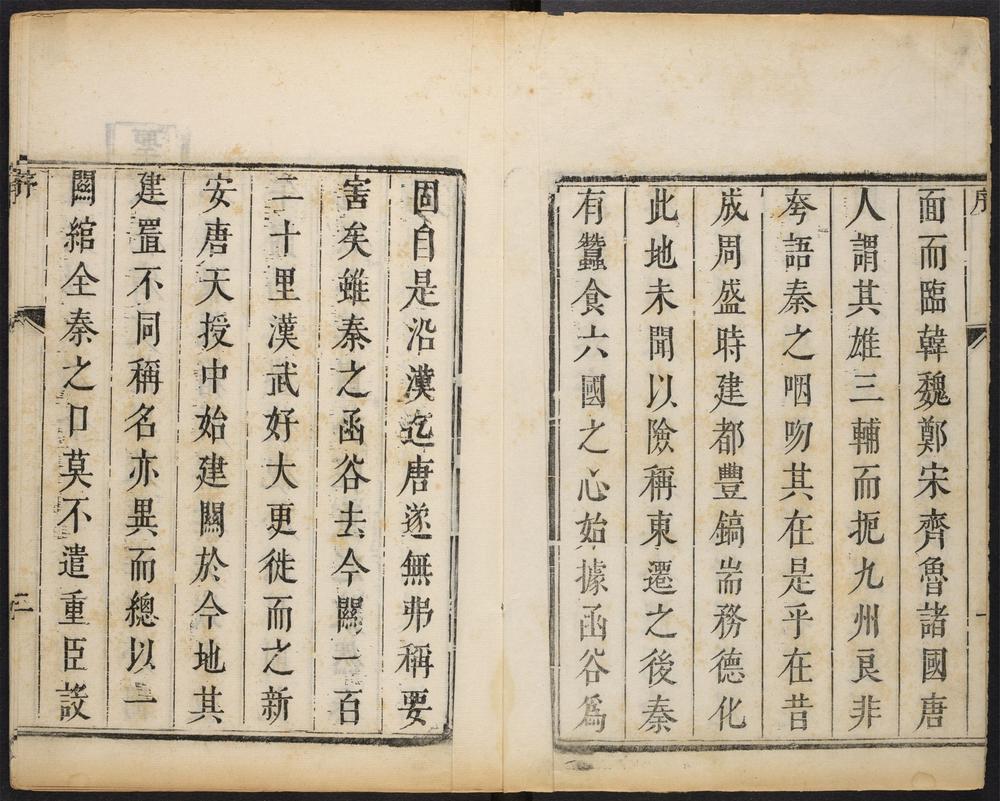 序
一
面而臨韓魏鄭宋齊魯諸國唐
人謂其雄三輔而扼九州良非
夸語秦之咽吻其在是乎在昔
成周盛時建都豐鎬耑務德化
此地未聞以險稱東遷之後秦
有蠶食六國之心始據函谷爲
固自是沿漢迄唐遂無弗稱要
害矣雖秦之函谷去今關一百
二十里漢武好大更徙而之新
安唐天授中始建關於今地其
建置不同稱名亦異而總以一
關綰全秦之口莫不遣重臣設
序